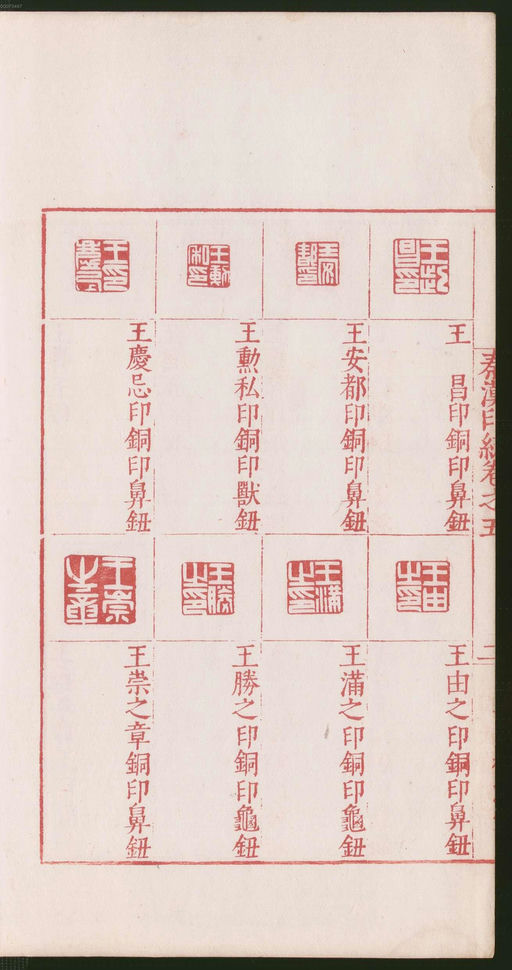 秦漢印統卷之五
二
王　昌印銅印鼻鈕
王安都印銅印鼻鈕
王勳私印銅印獸鈕
王慶忌印銅印鼻鈕
王由之印銅印鼻鈕
王滿之印銅印龜鈕
王勝之印銅印龜鈕
王崇之章銅印鼻鈕